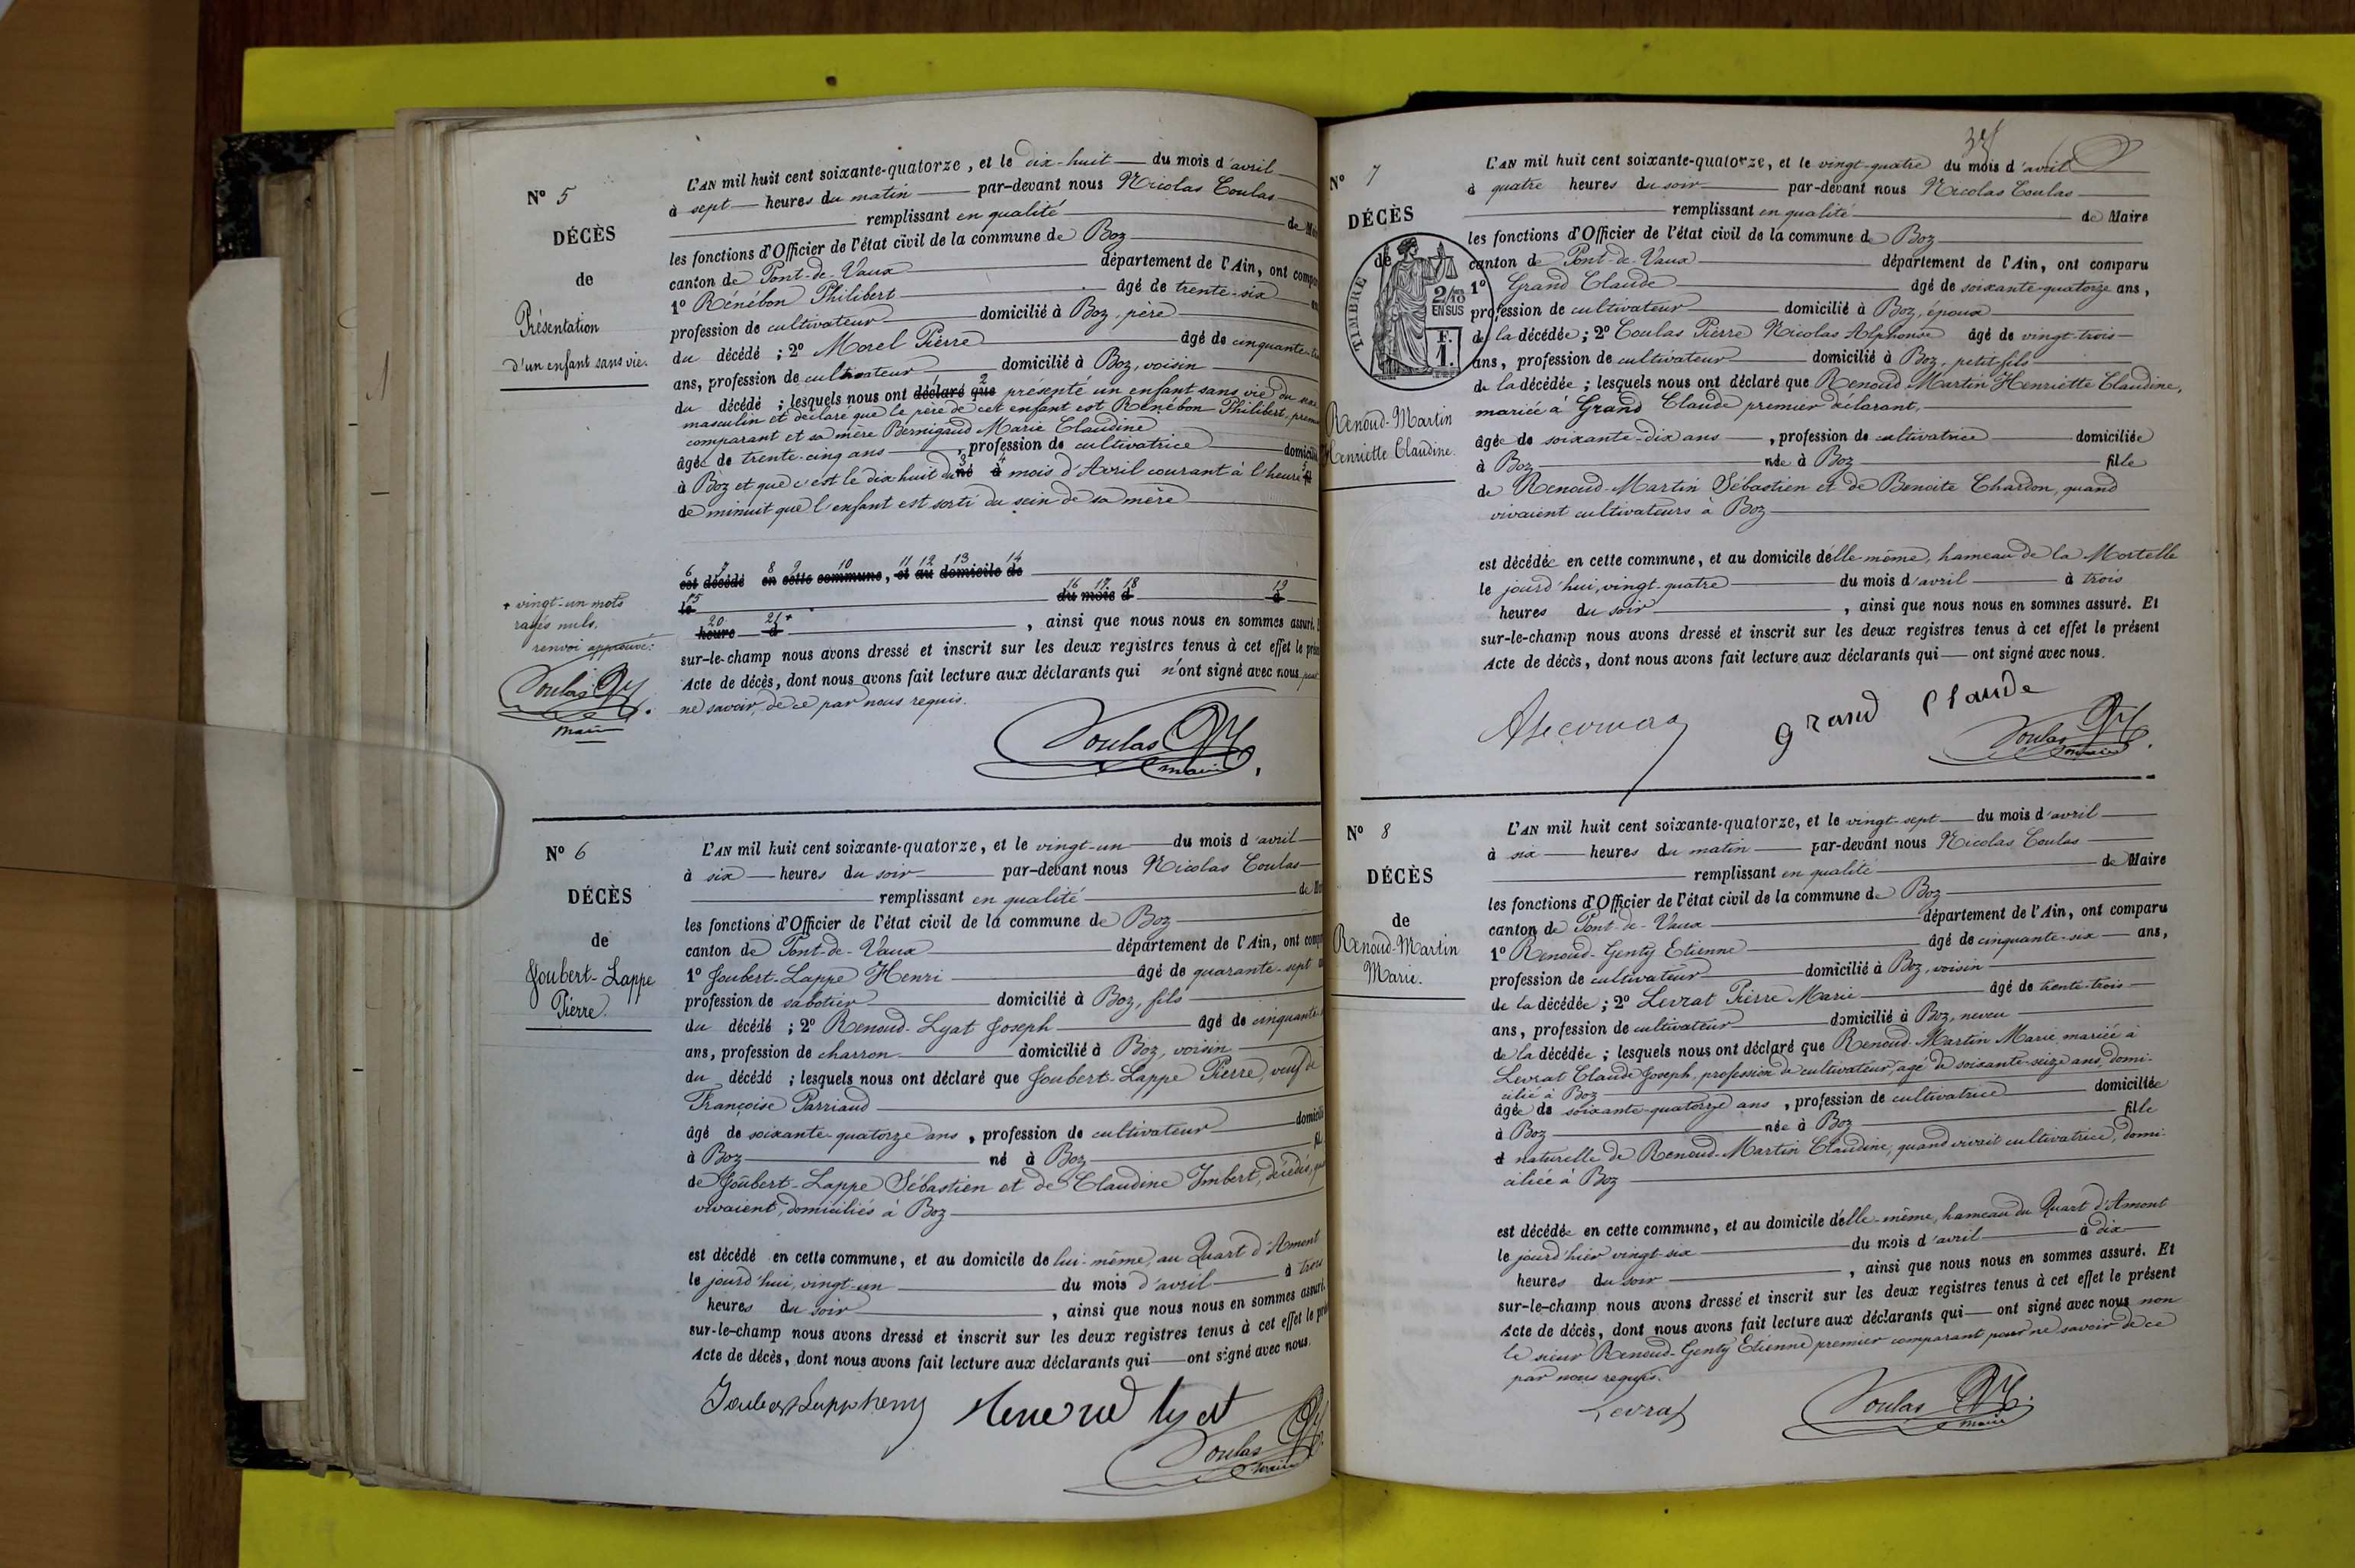 N° 5
DÉCÈS
de
Présentation
d'un enfant sans vie.
L'AN mil huit cent soixante-quatorze, et le dix-huit du mois d'avril
à sept heures du matin par-devant nous Nicolas Coulas
remplissant en qualité de
les fonctions d'Officier de l'état civil de la commune de Boz
canton de Pont-de-Vaux département de l'Ain, ont
1° Rénébon Philibert âgé de trente-six
profession de cultivateur domicilié à Boz, père
du décédé ; 2° Morel Pierre âgé de cinquante
ans, profession de cultivateur domicilié à Boz, voisin
1 2
du décédé ; lesquels nous ont déclaré que présenté un enfant sans vie du sexe
masculin et déclaré que le père de cet enfant est Rénébon Philibert,
comparant et sa mère Bernigaud Marie Claudine
âgée de trente-cinq ans, profession de cultivatrice
3 4
à Boz et que c'est le dix-huit du né à mois d'Avril courant à l'heure
de minuit que l'enfant est sorti du sein de sa mère
6 7 8 9 10 11 12 13 14
est décédé en cette commune, et au domicile de
15 16 17 18 19
le du mois d à
20 21 +
heure d , ainsi que nous nous en sommes assuré.
sur-le-champ nous avons dressé et inscrit sur les deux registres tenus à cet effet le
Acte de décès, dont nous avons fait lecture aux déclarants qui n'ont signé avec nous
ne savoir, de ce par nous requis.
+ vingt-un mots
rayés nuls.
renvoi approuvé:
Coulas
maire
Coulas
maire
N° 6
DÉCÈS
de
Joubert-Lappe
Pierre.
L'AN mil huit cent soixante-quatorze, et le vingt-un du mois d'avril
à six heures du soir par-devant nous Nicolas Coulas
remplissant en qualité de
les fonctions d'Officier de l'état civil de la commune de Boz
canton de Pont-de-Vaux département de l'Ain, ont
1° Joubert-Lappe Henri âgé de quarante-sept
profession de sabotier domicilié à Boz, fils
du décédé ; 2° Renoud-Lyat Joseph âgé de cinquante
ans, profession de charron domicilié à Boz, voisin
du décédé ; lesquels nous ont déclaré que Joubert-Lappe Pierre, veuf de
Françoise Parriaud
âgé de soixante-quatorze ans, profession de cultivateur
à Boz né à Boz
de Joubert-Lappe Sébastien et de Claudine Imbert, décédés,
vivaient, domiciliés à Boz
est décédé en cette commune, et au domicile de lui-même, au Quart d'Amont
le jourd'hui, vingt-un du mois d'avril à trois
heures du soir, ainsi que nous nous en sommes assuré.
sur-le-champ nous avons dressé et inscrit sur les deux registres tenus à cet effet le
Acte de décès, dont nous avons fait lecture aux déclarants qui ont signé avec nous.
Joubert Lapp henry Renoud lyat
Coulas
maire
N° 7
DÉCÈS
de
TIMBRE
2/10
EN SUS
F.
1.
Renoud-Martin
Henriette Claudine.
L'AN mil huit cent soixante-quatorze, et le vingt-quatre du mois d'avril
à quatre heures du soir par-devant nous Nicolas Coulas
remplissant en qualité de Maire
les fonctions d'Officier de l'état civil de la commune de Boz
canton de Pont-de-Vaux département de l'Ain, ont comparu
1° Grand Claude âgé de soixante-quatorze ans,
profession de cultivateur domicilié à Boz, époux
de la décédée ; 2° Coulas Pierre Nicolas Alphonse âgé de vingt-trois
ans, profession de cultivateur domicilié à Boz, petit-fils
de la décédée ; lesquels nous ont déclaré que Renoud-Martin Henriette Claudine,
mariée à Grand Claude premier déclarant,
âgée de soixante-dix ans, profession de cultivatrice domiciliée
à Boz née à Boz fille
de Renoud-Martin Sébastien et de Benoite Chardon, quand
vivaient cultivateurs à Boz
est décédée en cette commune, et au domicile d'elle-même, hameau de la Mortelle
le jourd'hui, vingt-quatre du mois d'avril à trois
heures du soir, ainsi que nous nous en sommes assuré. Et
sur-le-champ nous avons dressé et inscrit sur les deux registres tenus à cet effet le présent
Acte de décès, dont nous avons fait lecture aux déclarants qui ont signé avec nous.
grand Claude
Coulas
maire
N° 8
DÉCÈS
de
Renoud-Martin
Marie.
L'AN mil huit cent soixante-quatorze, et le vingt-sept du mois d'avril
à six heures du matin par-devant nous Nicolas Coulas
remplissant en qualité de Maire
les fonctions d'Officier de l'état civil de la commune de Boz
canton de Pont-de-Vaux département de l'Ain, ont comparu
1° Renoud-Genty Etienne âgé de cinquante-six ans,
profession de cultivateur domicilié à Boz, voisin
de la décédée ; 2° Levrat Pierre Marie âgé de trente-trois
ans, profession de cultivateur domicilié à Boz, neveu
de la décédée ; lesquels nous ont déclaré que Renoud-Martin Marie, mariée à
Levrat Claude Joseph, profession de cultivateur, âgé de soixante-seize ans, domi-
cilié à Boz
âgée de soixante-quatorze ans, profession de cultivatrice domiciliée
à Boz née à Boz fille
d naturelle de Renoud-Martin Claudine, quand vivait cultivatrice, domi-
ciliée à Boz
est décédée en cette commune, et au domicile d'elle-même, hameau du Quart d'Amont
le jourd'hier vingt-six du mois d'avril à dix
heures du soir, ainsi que nous nous en sommes assuré. Et
sur-le-champ nous avons dressé et inscrit sur les deux registres tenus à cet effet le présent
Acte de décès, dont nous avons fait lecture aux déclarants qui ont signé avec nous non
le sieur Renoud-Genty Etienne premier comparant pour ne savoir de ce
par nous requis.
Levrat
Coulas
maire